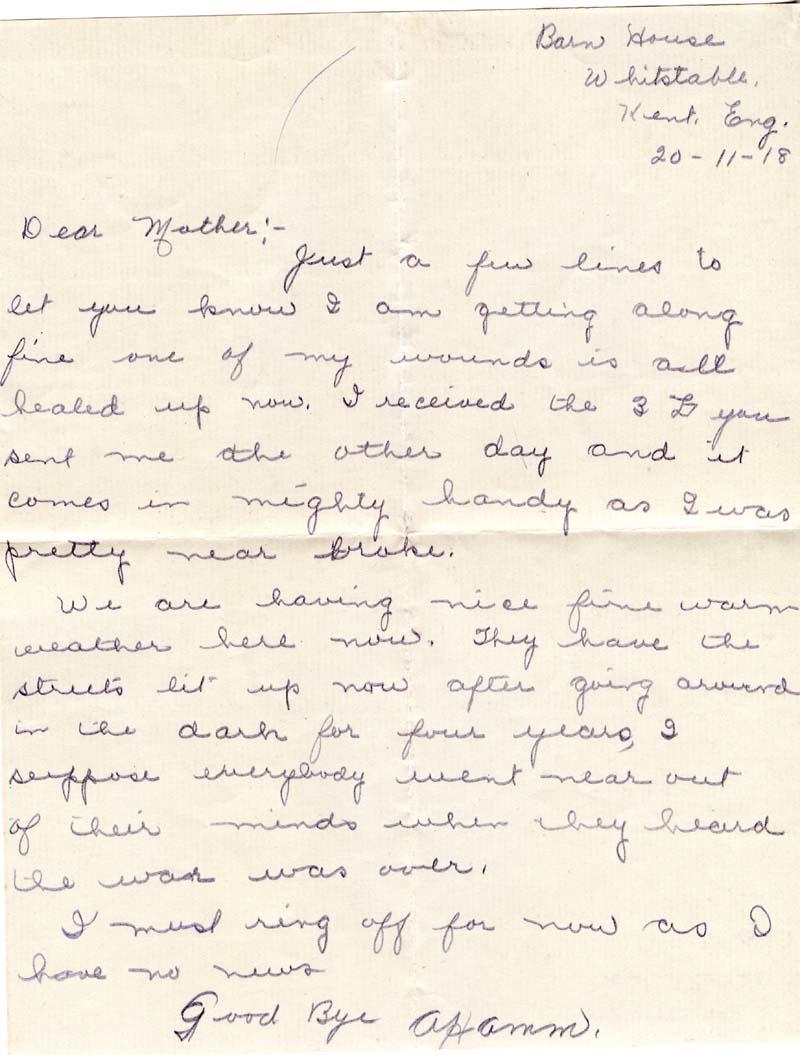 Barn House
Whitstable,
Kent, Eng.
20-11-18
Dear Mother;-
Just a few lines to
let you know I am getting along
fine one of my wounds is all
healed up now. I received the 3 £ you
sent me the other day and it
comes in mighty handy as I was
pretty near broke.
We are having nice fine warm
weather here now. They have the
streets lit up now after going around
in the dark for four years, I
suppose everybody went near out
of their minds when they heard
the war was over.
I must ring off for now as I
have no news
Good Bye AHamm.